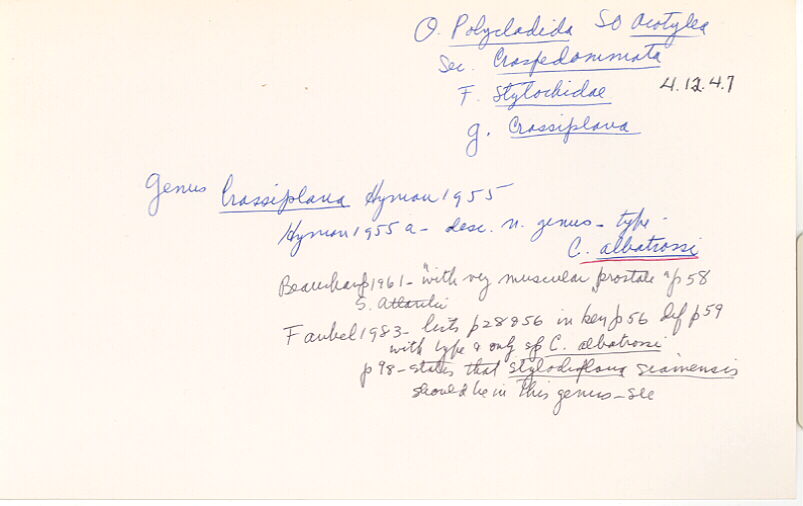 O. Polycladida SO Acotylea
Sec. Craspedommata
F. Stylochidae 4.12.4.7
g. Crassiplana
Genus Crassiplana Hyman 1955
Hyman 1955a - desc. n. genus - type -
C. albatrossi
Beauchamp 1961 - "with very muscular prostate" p 58
S. Atlantic
Faubel 1983 - lists p 28 & 56 in key p 56 def p 59
with type & only sp C. albatrossi
p 98 - states that Stylodiplana siamensis
should be in this genus - see